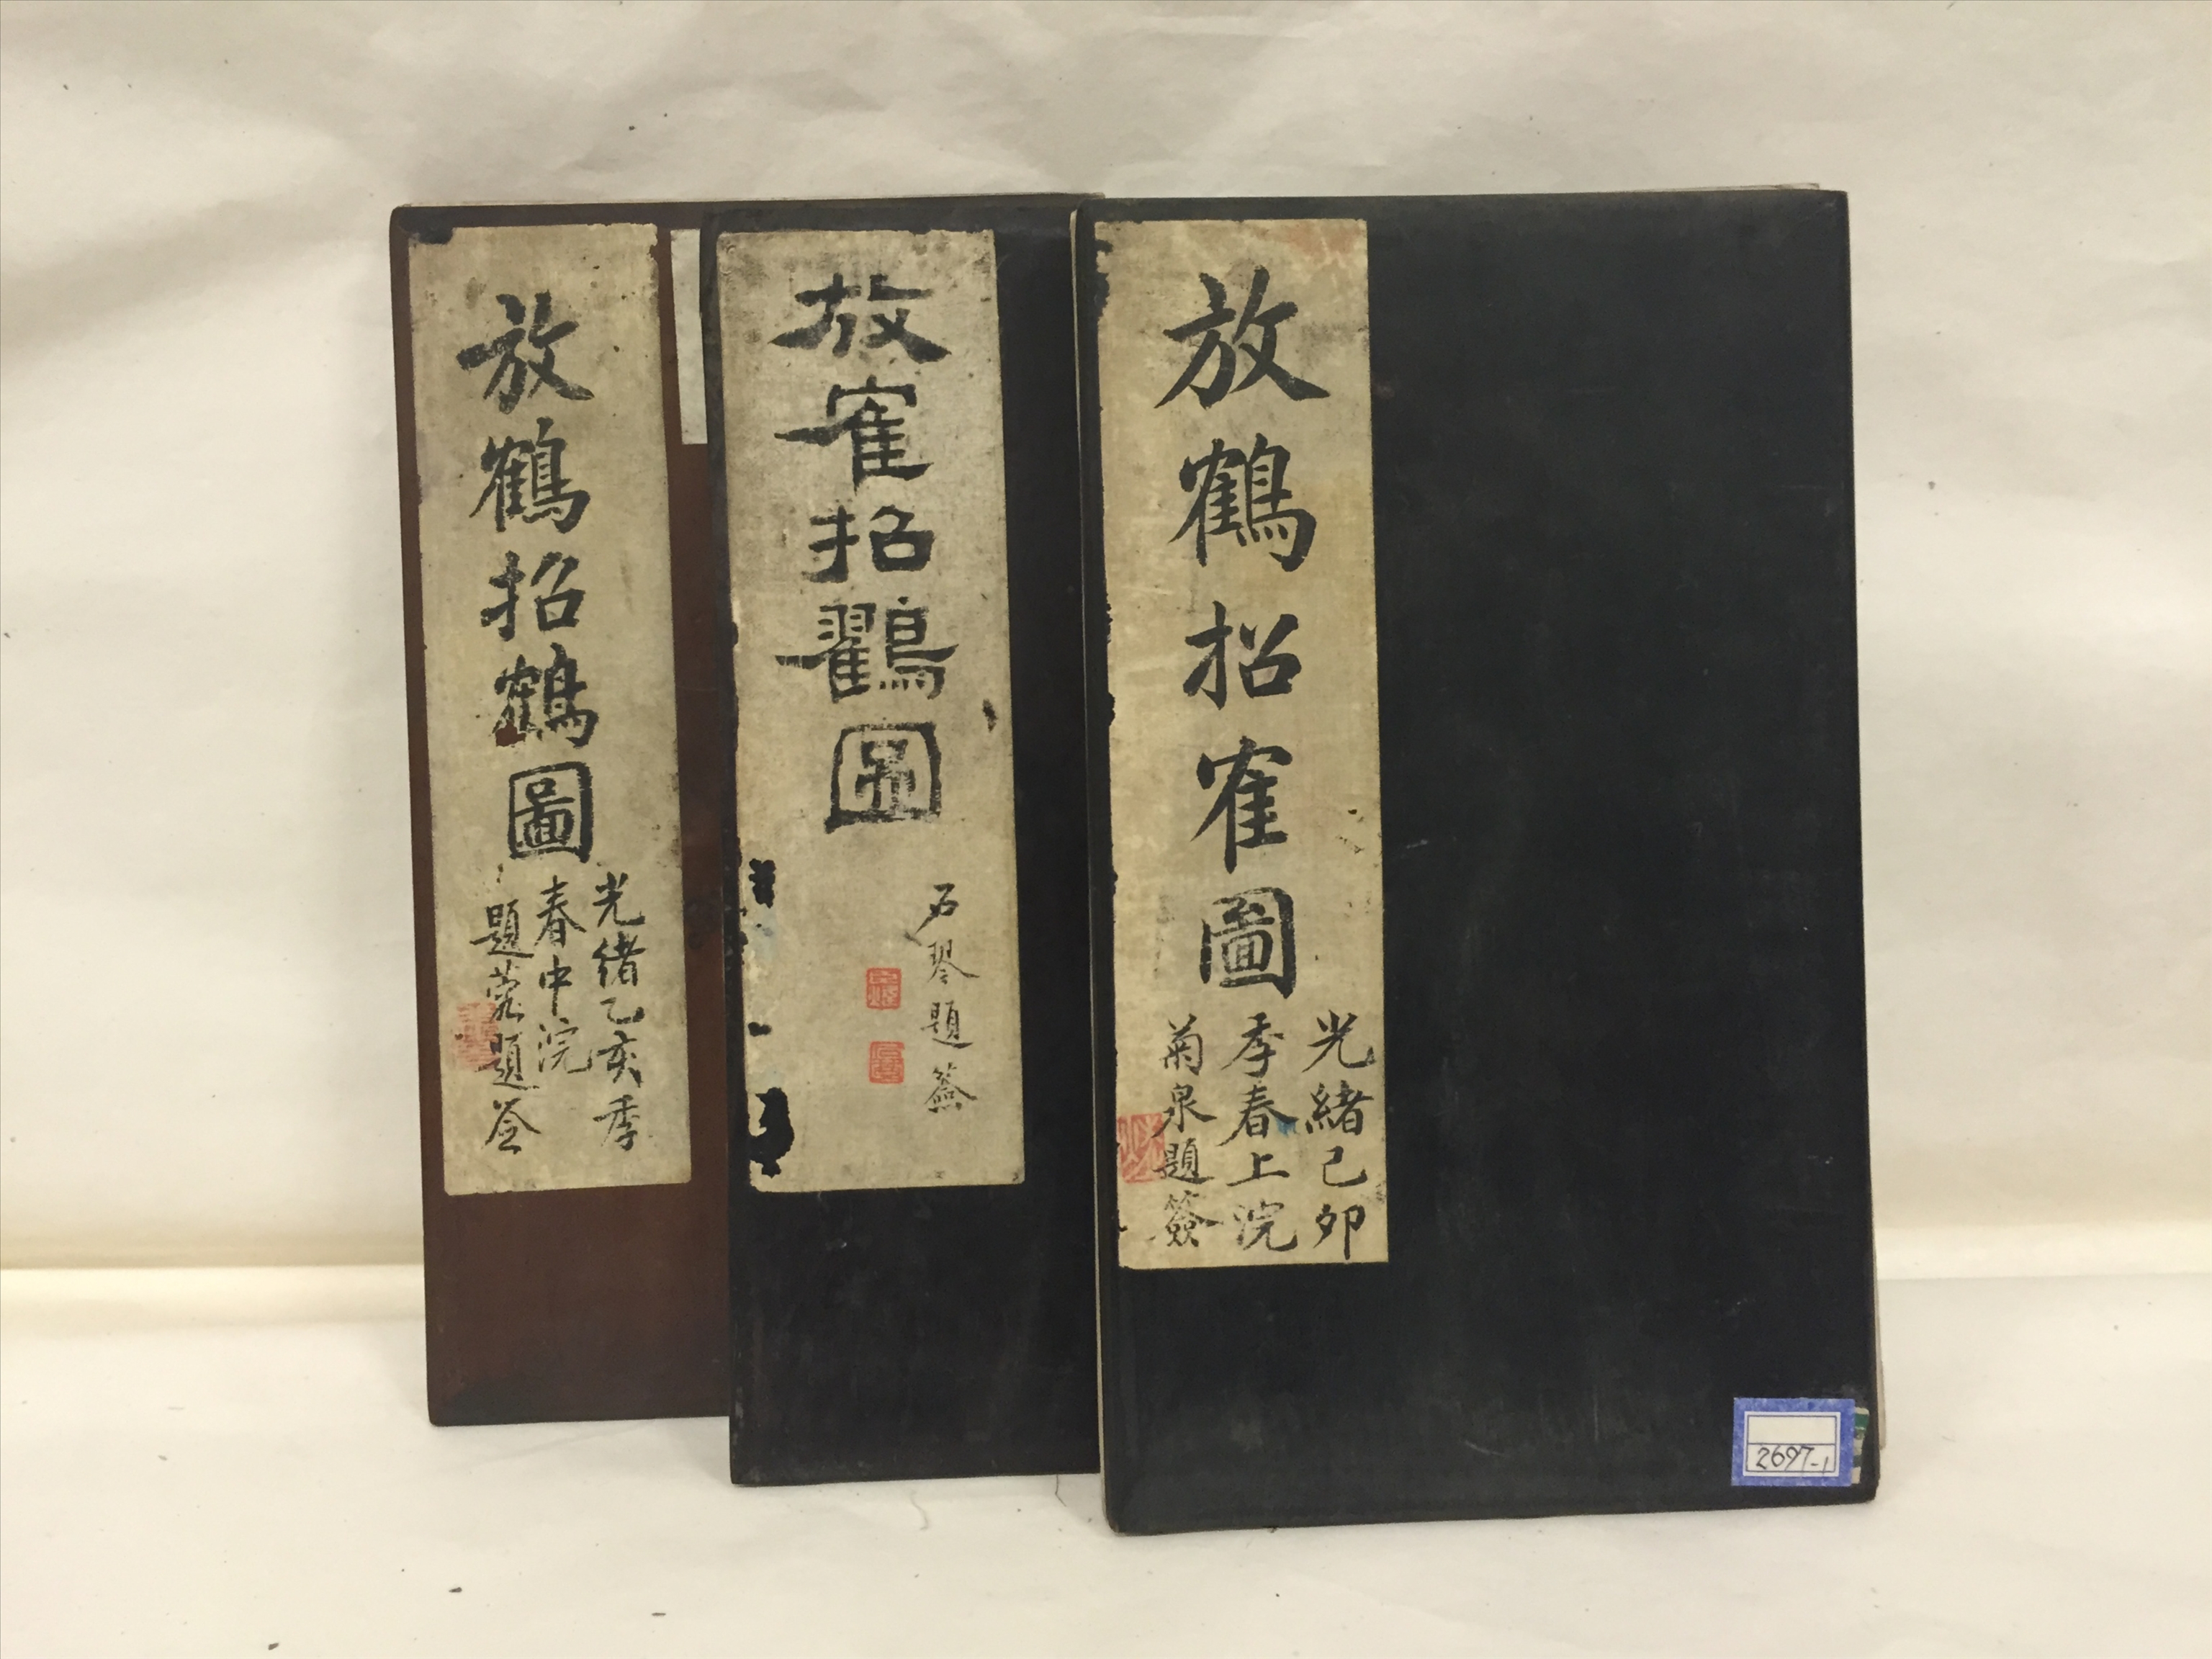 放鶴招鶴圖
光緒乙亥季
春中浣
題
題签
放隺招鸖圖
石琴題簽
放鶴招隺圖
光緒己卯
季春上浣
菊泉題簽
2697-1